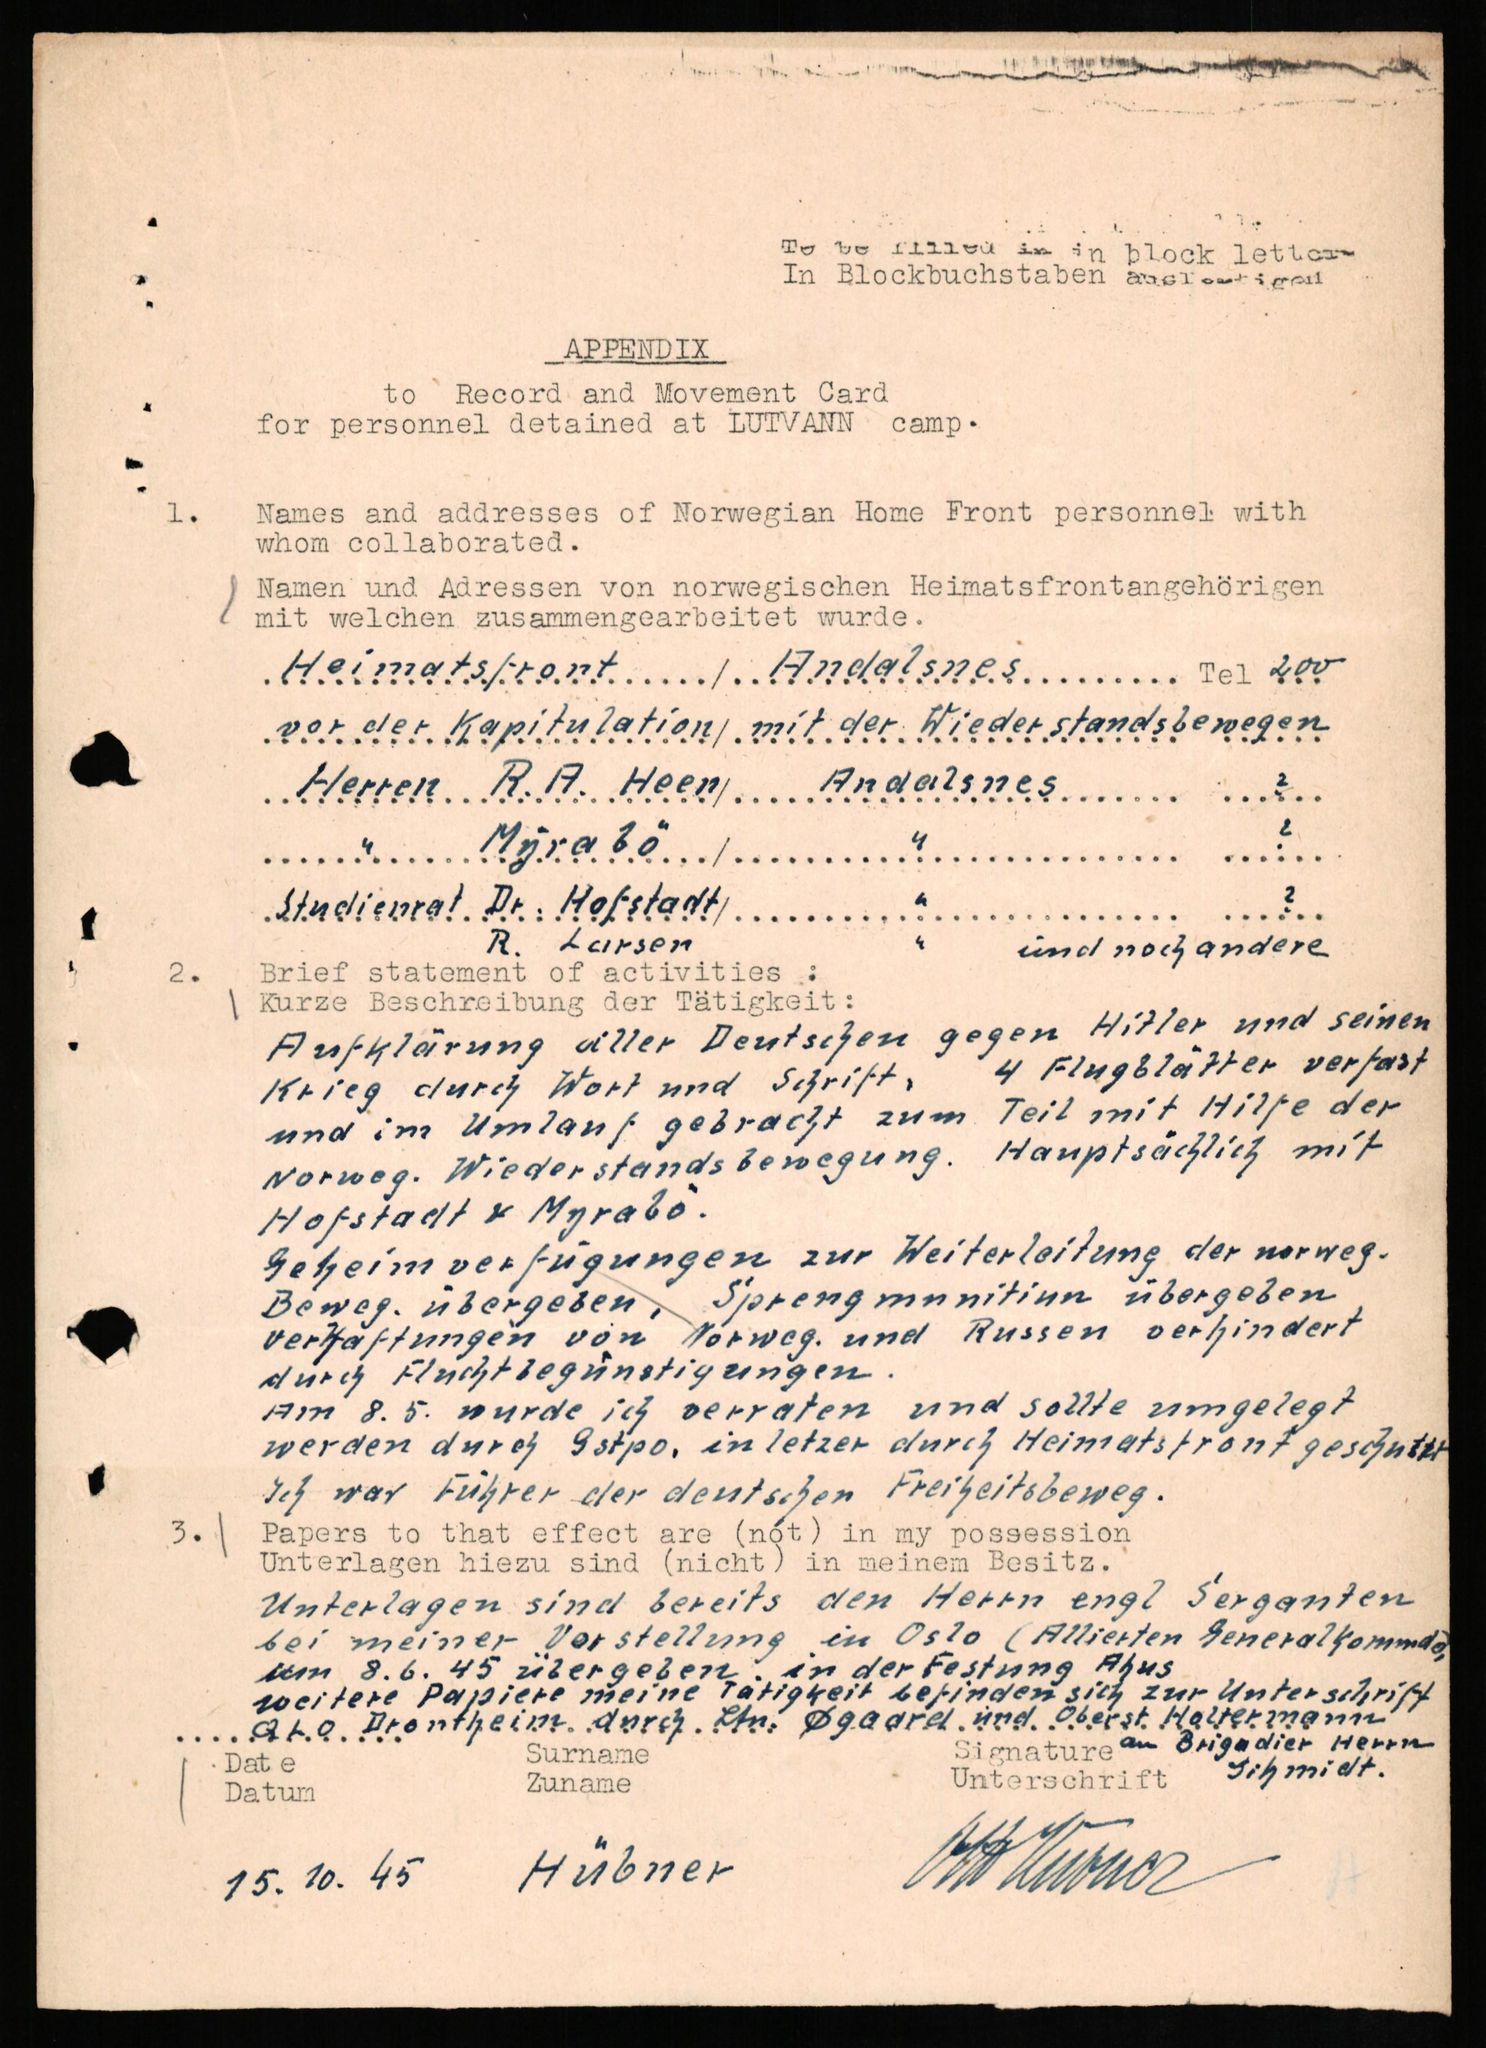 To be filled in in block letter
In Blockbuchstaben ausfertigen
APPENDIX
to Record and Movement Card
for personnel detained at LUTVANN camp.
1. Names and addresses of Norwegian Home Front personnel with
whom collaborated.
Namen und Adressen von norwegischen Heimatsfrontangehörigen
mit welchen zusammengearbeitet wurde.
Heimatsfront / Andalsnes Tel 200
vor der Kapitulation / mit der Wiederstandsbewegen
Herren R.A. Heen / Andalsnes ?
" Myrabö / " ?
Studienrat Dr. Hofstadt / " ?
R. Larsen " und noch andere
2. Brief statement of activities :
Kurze Beschreibung der Tätigkeit:
Aufklärung aller Deutschen gegen Hitler und seinen
Krieg durch Wort und Schrift, 4 Flugblätter verfast
und im Umlauf gebracht zum Teil mit Hilfe der
Norweg. Wiederstandsbewegung. Hauptsächlich mit
Hofstadt & Myrabö.
Geheimverfügungen zur Weiterleitung der norweg.
Beweg. übergeben, Sprengmunition übergeben
verhaftungen von Norweg. und Russen verhindert
durch Fluchtbegünstigungen.
Am 8.5. wurde ich verraten und sollte umgelegt
werden durch Gstpo. in letzer durch Heimatsfront geschützt
Ich war Führer der deutschen Freiheitsbeweg.
3. Papers to that effect are (not) in my possession
Unterlagen hiezu sind (nicht) in meinem Besitz.
Unterlagen sind bereits den Herrn engl Serganten
bei meiner Vorstellung in Oslo (Allierten Generalkommdo,
am 8.6.45 übergeben. in der Festung Ahus
weitere Papiere meine Tätigkeit befinden sich zur Unterschrift
Drontheim durch Ltn. Øgaard und Oberst Holtermann
an Brigadier Herrn
Schmidt.
Date Surname Signature
Datum Zuname Unterschrift
15. 10. 45 Hübner Otto Hübner